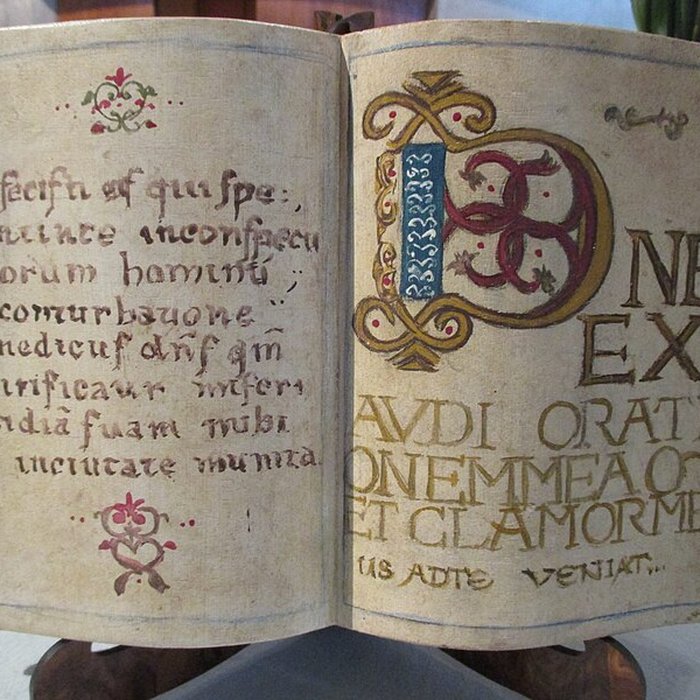 fecifti ef qui fpe:,
inconfpectu
orum hominū
conturbatione
nedicuf dn̄f qm̄
mirificavit miferi
ordiā fuam mihi
inciutate munita.
DNE
EX
AVDI ORATI
ONEMMEAO
ET CLAMORME
US ADTE VENIAT...